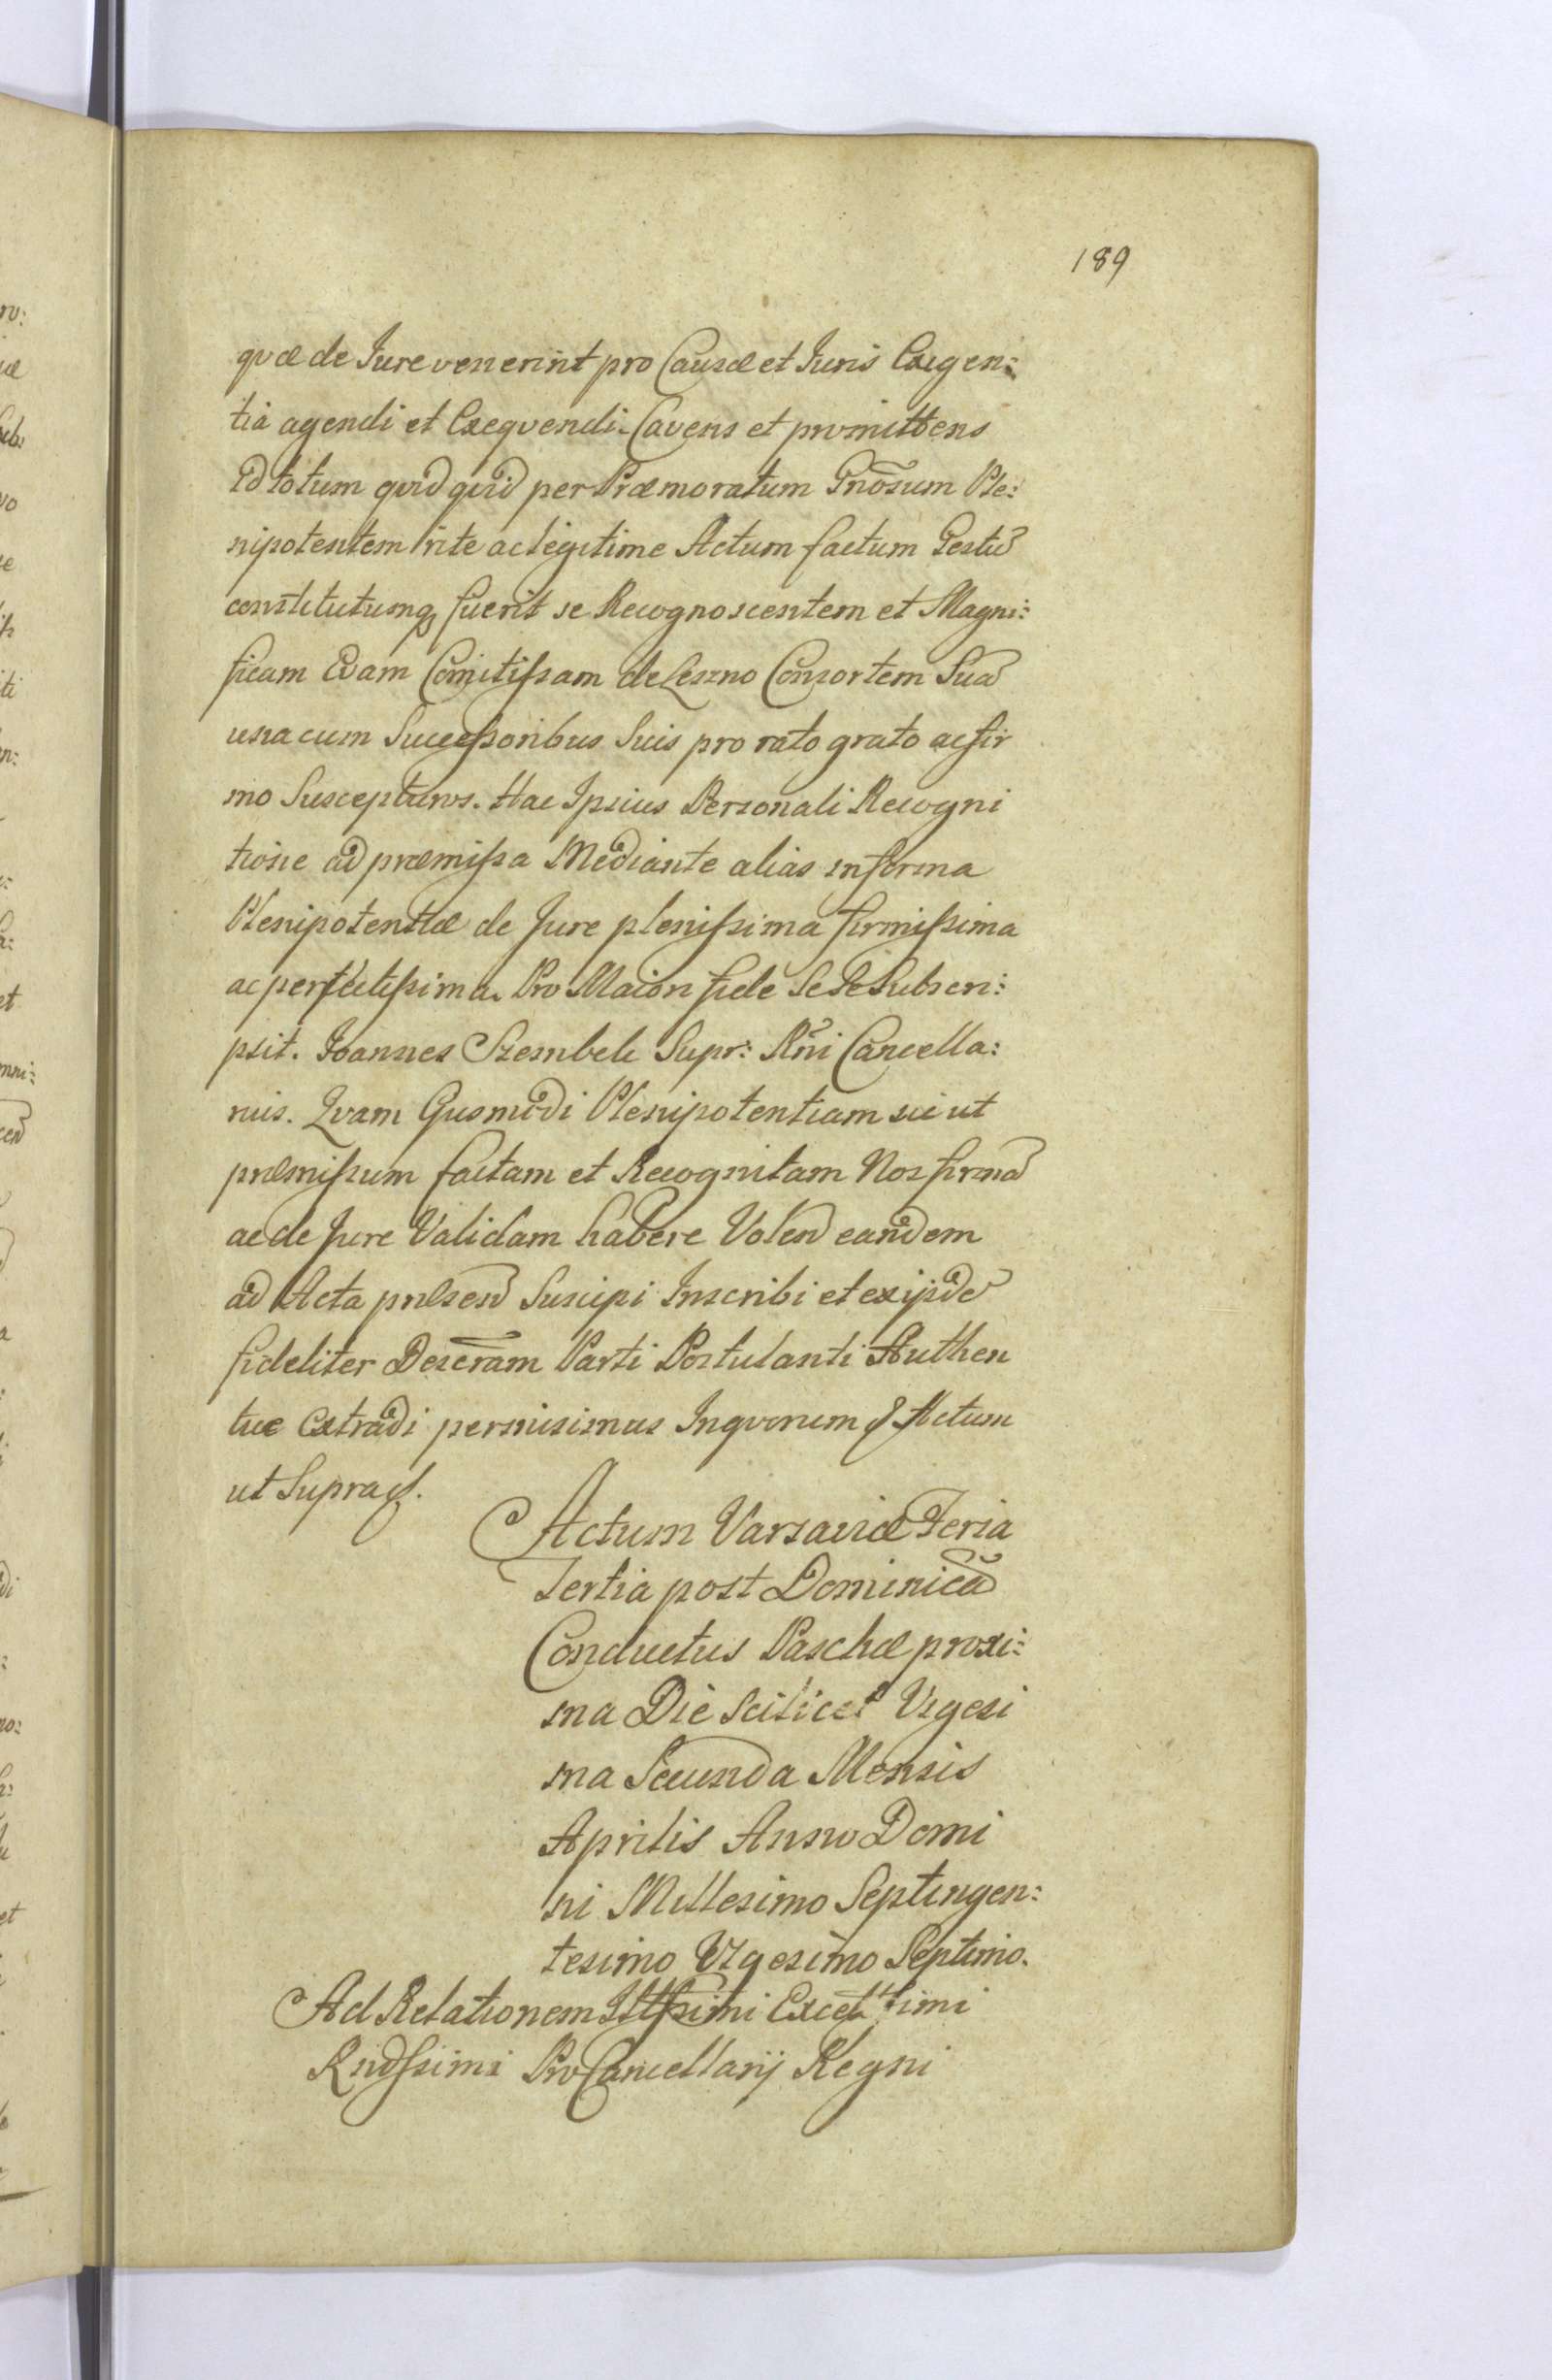 189
qvæ de Jure venerint pro Causæ et Juris Exigen:
tia agendi et Exeqvendi. Cavens et promittens
Id totum qvid qvid per Præmoratum Gnõsum Ple:
nipotentem rite ac legitime Actum factum Gestũ
constitutumq; fuerit se Recognoscentem et Magni:
ficam Evam Comitissam de Leszno Consortem Suã
una cum Successoribus Suis pro rato grato ac fir
mo Suscepturos. Hac Ipsius Personali Recogni
tione ad præmissa Mediante alias in forma
Plenipotentiæ de Jure plenissima firmissima
ac perfectissima. Pro Maiori fide Se Se Subscri:
psit. Joannes Szembek Supr: Rñi Cancella:
rius. Qvam Gusmodi Plenipotentiam uti ut
præmissum factam et Recognitam Nos firmã
ac de Jure Validam habere Volen eandem
ad Acta præsen Suscipi Inscribi et ex ijsde
fideliter Descr̃am Parti Postulanti Authen
tice Extradi permisimus Inqvorum &. Actum
ut Supra &.
Actum Varsaviæ Feria
Tertia post Dominicã
Conductus Paschæ proxi:
ma Die Scilicet Vigesi
ma Secunda Mensis
Aprilis Anno Domi
ni Millesimo Septingen:
tesimo Vigesimo Septimo.
Ad Relationem Illssimi Excellssimi
Rndssimi ProCancellarij Regni